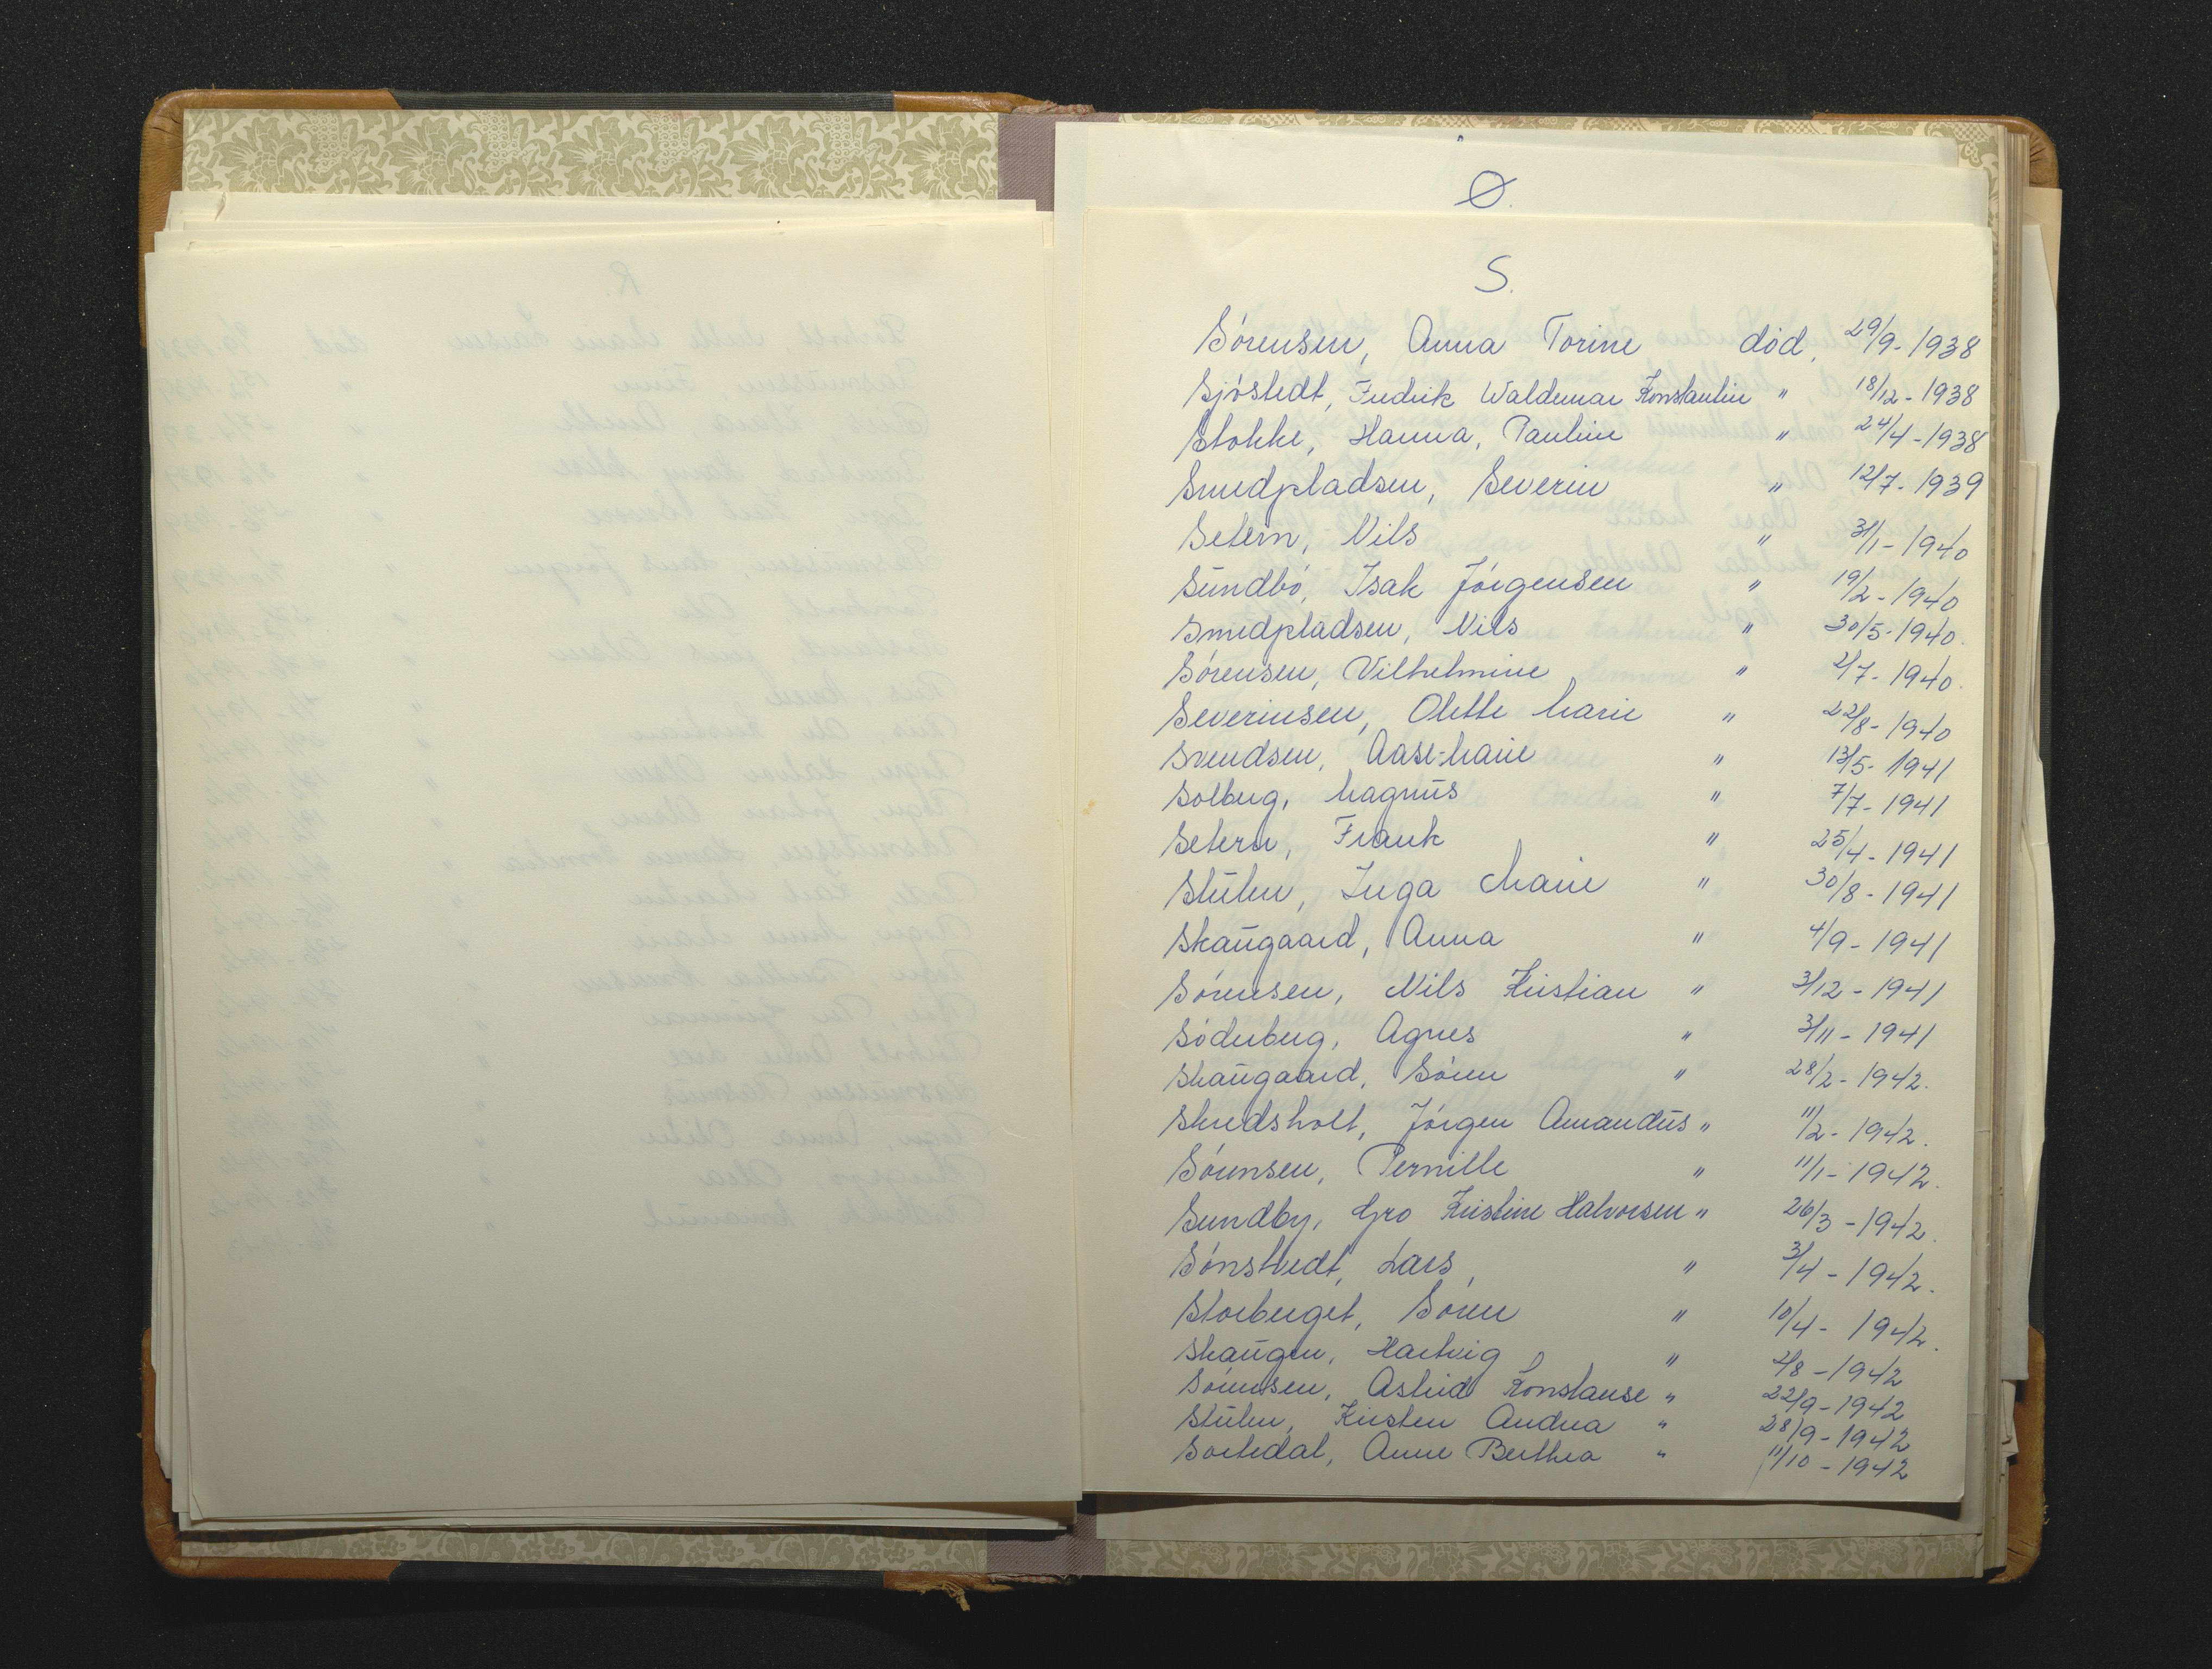 Ø.
S.
Sörensen, Anna Torine død. 29/9-1938
Sjöstedt, Fredrik Waldemar Konstantin " 18/12-1938
Stokke, Hanna, Pauline " 24/4-1938
Smedpladsen, Severin " 12/7-1939
Setern, Nils " 31/1-1940
Sundbö, Isak Jörgensen " 19/2-1940
Smedpladsen, Nils " 30/5-1940.
Sörensen, Vilhelmine " 2/7-1940.
Severinsen, Olette Marie " 22/8-1940
Svendsen, Aase-Marie " 13/5-1941
Solberg, Magnus " 7/7-1941
Setern, Frank " 25/4-1941
Stulen, Inga Marie " 30/8-1941
Skaugaard, Anna " 4/9-1941
Sörensen, Nils Kristian " 3/12-1941
Söderberg, Agnes " 3/11-1941
Skaugaard, Sören " 28/2-1942.
Skredsholt, Jörgen Amandus " 11/2-1942.
Sörensen, Pernille " 11/1-1942.
Sundby, Gro Kristine Halvorsen " 26/3-1942.
Sönstedt, Lars, " 3/4-1942.
Storberget, Sören " 10/4-1942.
Skaugen, Hartvig " 2/8-1942
Sörensen, Astrid Konstanse " 22/9-1942
Stulen, Kirsten Andrea " 28/9-1942
Sortedal, Anne Berthea " 11/10-1942